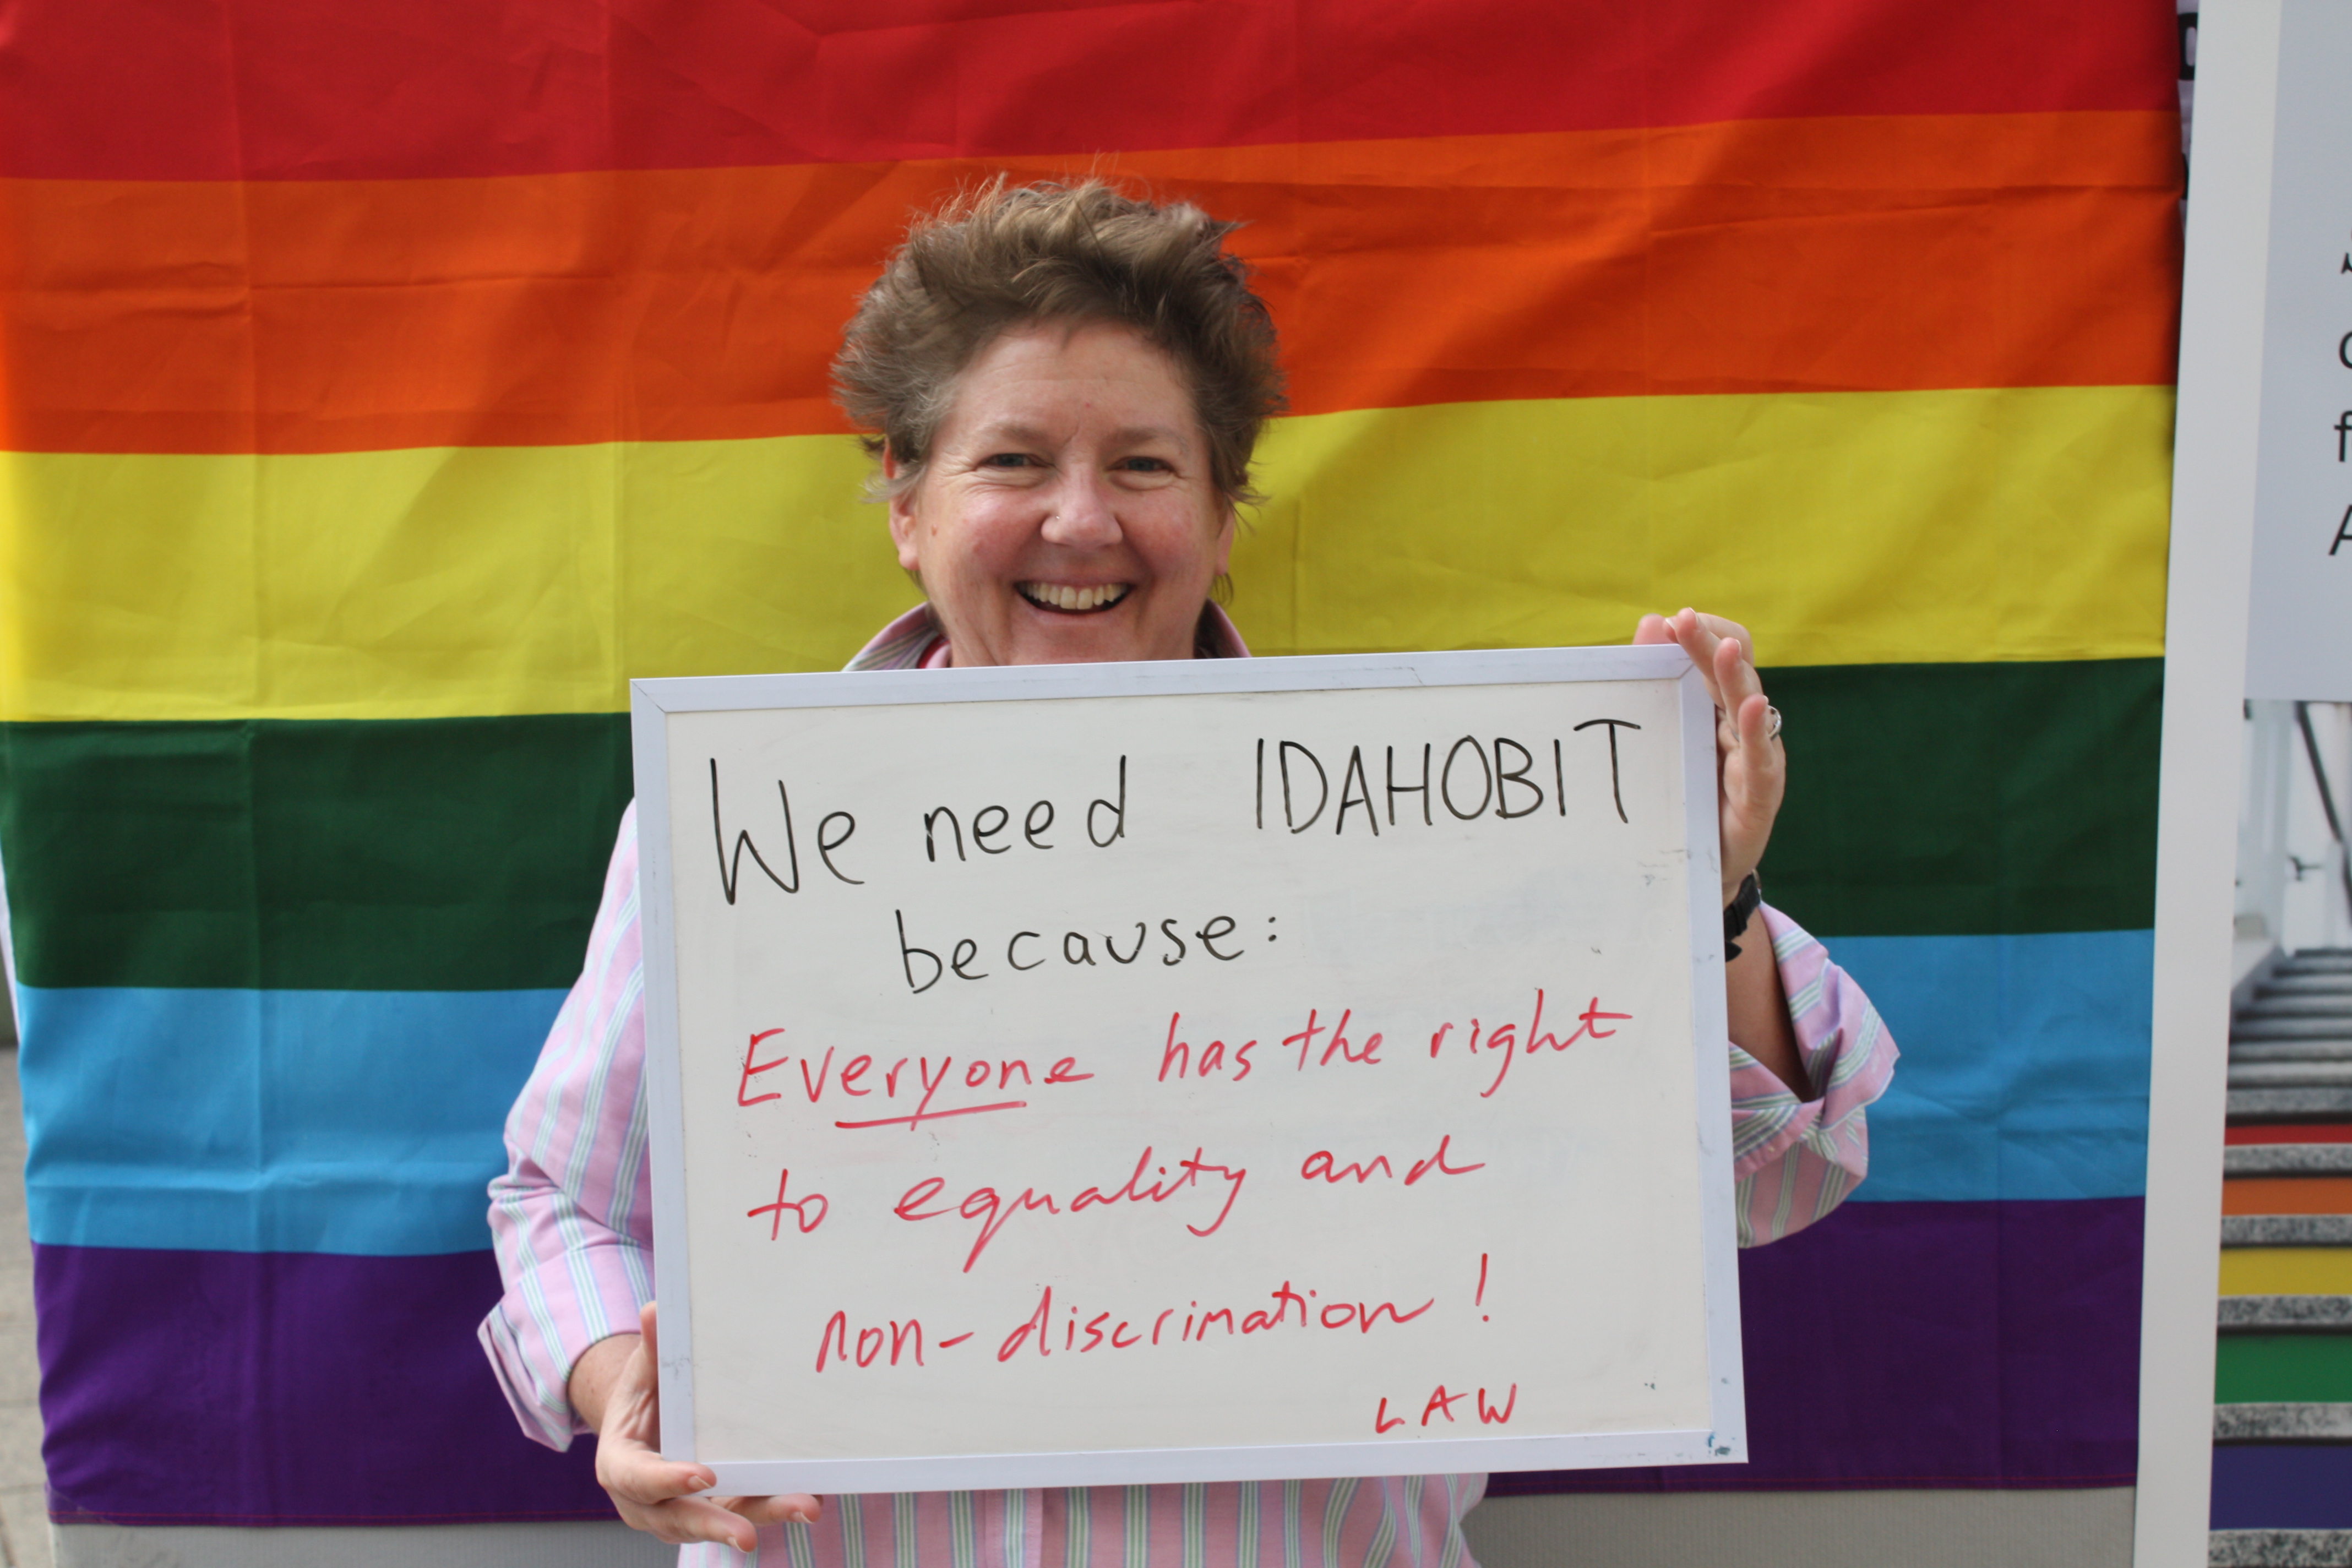 We need IDAHOBIT
because:
Everyone has the right
to equality and
non-discrimation!
LAW